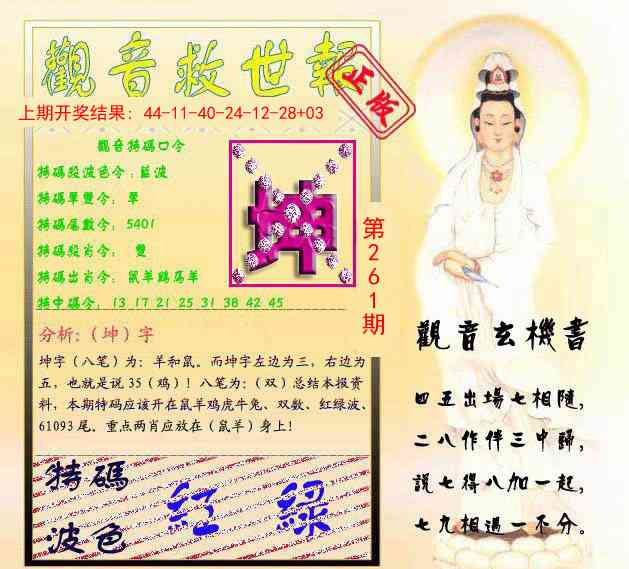 觀音救世報
正版
上期开奖结果：44-11-40-24-12-28+03
觀音特碼口令
特碼段波色令：藍波
特碼單雙令：單
特碼尾數令：5401
特碼段肖令：雙
特碼出肖令：鼠羊鷄馬羊
特中碼令：13 17 21 25 31 38 42 45
坤
第261期
分析：（坤）字
坤字（八笔）为：羊和鼠。而坤字左边为三，右边为
五，也就是说 35（鸡）！八笔为：（双）总结本报资
料，本期特码应该开在鼠羊鸡虎牛兔、双数、红绿波、
61093 尾。重点两肖应放在（鼠羊）身上！
特碼
波色
紅 綠
觀音玄機書
四五出場七相隨，
二八作伴三中歸，
説七得八加一起，
七九相遇一不分。